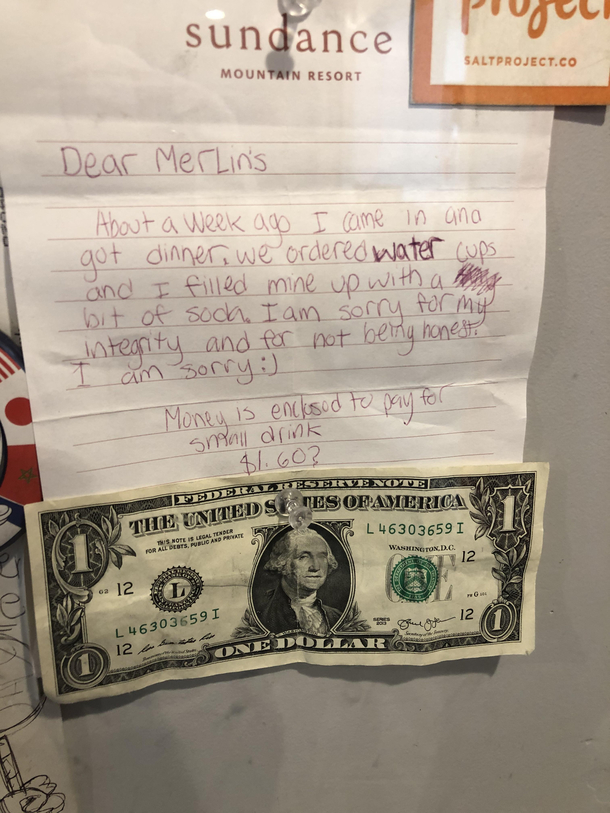 sundance
MOUNTAIN RESORT
project
SALTPROJECT.CO
Dear Merlin's
About a week ago I came in and
got dinner, we ordered water cups
and I filled mine up with a
bit of soda. I am sorry for my
integrity and for not being honest.
I am sorry :)
Money is enclosed to pay for
small drink
$1.60?
FEDERAL RESERVE NOTE
THE UNITED STATES OF AMERICA
THIS NOTE IS LEGAL TENDER
FOR ALL DEBTS, PUBLIC AND PRIVATE
L 46303659 I
WASHINGTON, D.C.
1
1
12
12
L
L 46303659 I
12
12
SERIES
2013
1
1
ONE DOLLAR